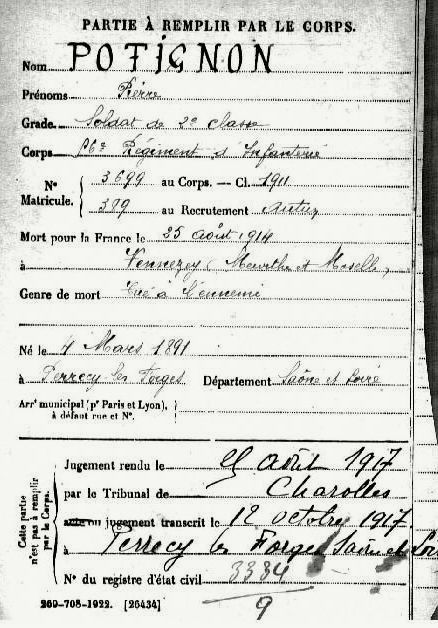 PARTIE À REMPLIR PAR LE CORPS.
Nom POTIGNON
Prénoms Pierre
Grade Soldat de 2e classe
Corps Régiment d'Infanterie
No Matricule. 3699 au Corps. — Cl. 1911
389 au Recrutement Autun
Mort pour la France le 25 août 1914
à Vennezey (Meurthe et Moselle)
Genre de mort Tué à l'ennemi
Né le 4 Mars 1891
à Perrecy les Forges Département Saône et Loire
Arrt municipal (pr Paris et Lyon), à défaut rue et No.
Cette partie n'est pas à remplir par le Corps.
Jugement rendu le août 1917
par le Tribunal de Charolles
jugement transcrit le 12 octobre 1917
à Perrecy les Forges Saône et Loire
No du registre d'état civil 3384
9
269-708-1922. [26434]